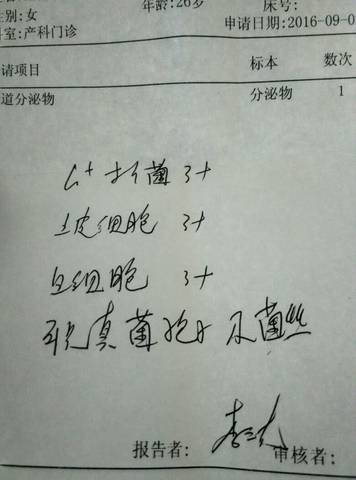 性别:女 年龄:26岁 床号:
室:产科门诊 申请日期:2016-09-0
请项目 标本 数次
道分泌物 分泌物 1
G+ 杆菌 3+
上皮细胞 3+
白细胞 3+
见真菌孢子及菌丝
报告者: 审核者: